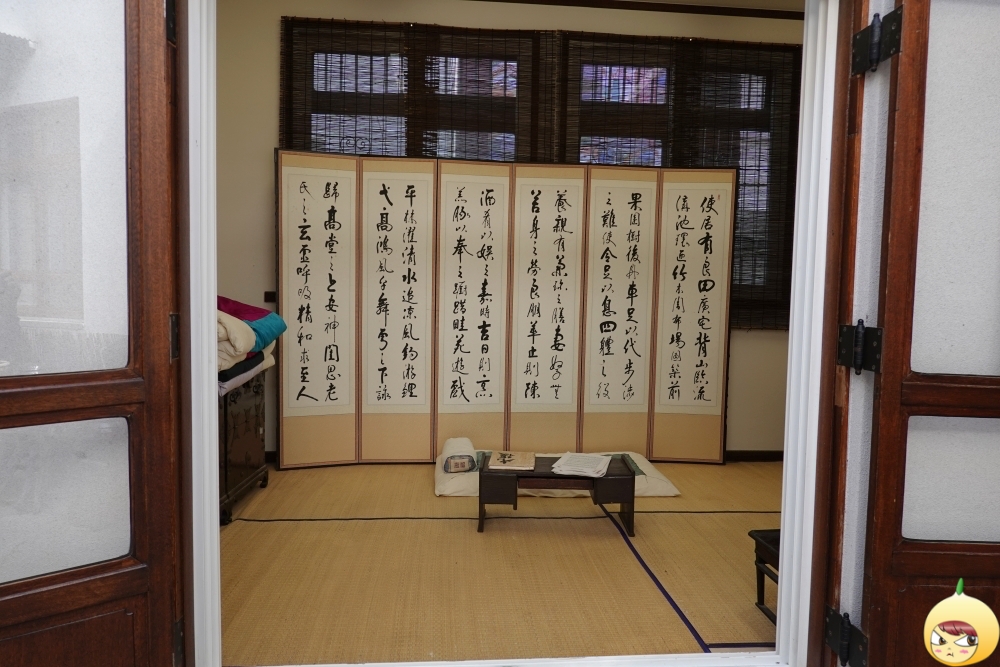 使居有良田廣宅背山臨流
溝池環匝竹木周布場圃築前
果園樹後舟車足以代步涉
之難使令足以息四體之役
養親有兼珍之膳妻孥無
苦身之勞良朋萃止則陳
酒肴以娛之嘉時吉日則烹
羔豚以奉之躕躇畦苑遊戲
平林濯清水追涼風釣游鯉
弋高鴻風乎舞雩之下詠
歸高堂之上安神閨思老
氏之玄虛呼吸精和求至人